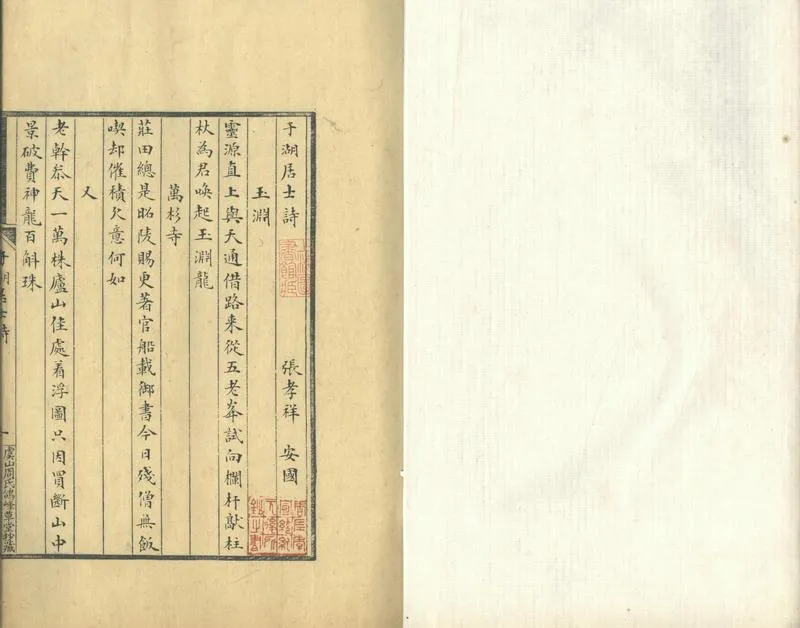 于湖居士詩 張孝祥 安國
玉淵
靈源直上與天通借路来從五老峯試向欄杆敲柱
杖為君喚起玉淵龍
萬杉寺
莊田總是昭陵賜更著官船載御書今日殘僧無飯
喫却催積欠意何如
又
老幹叅天一萬株廬山佳處着浮圖只因買斷山中
景破費神龍百斛珠
于湖居士詩
一
虞山周氏鴿峰草堂鈔藏